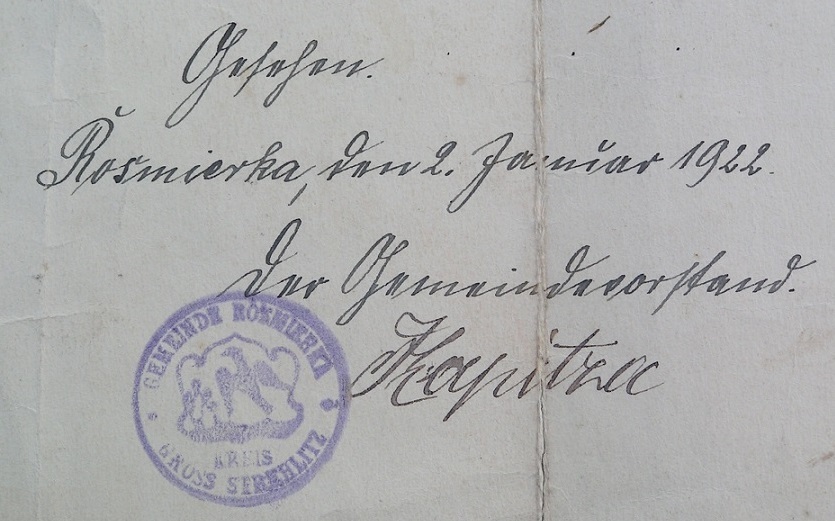 Gesehen.
Rosmierka, den 2. Januar 1922.
Der Gemeindevorstand.
Kapitza
GEMEINDE ROSMIERKA
KREIS
GROSS STREHLITZ